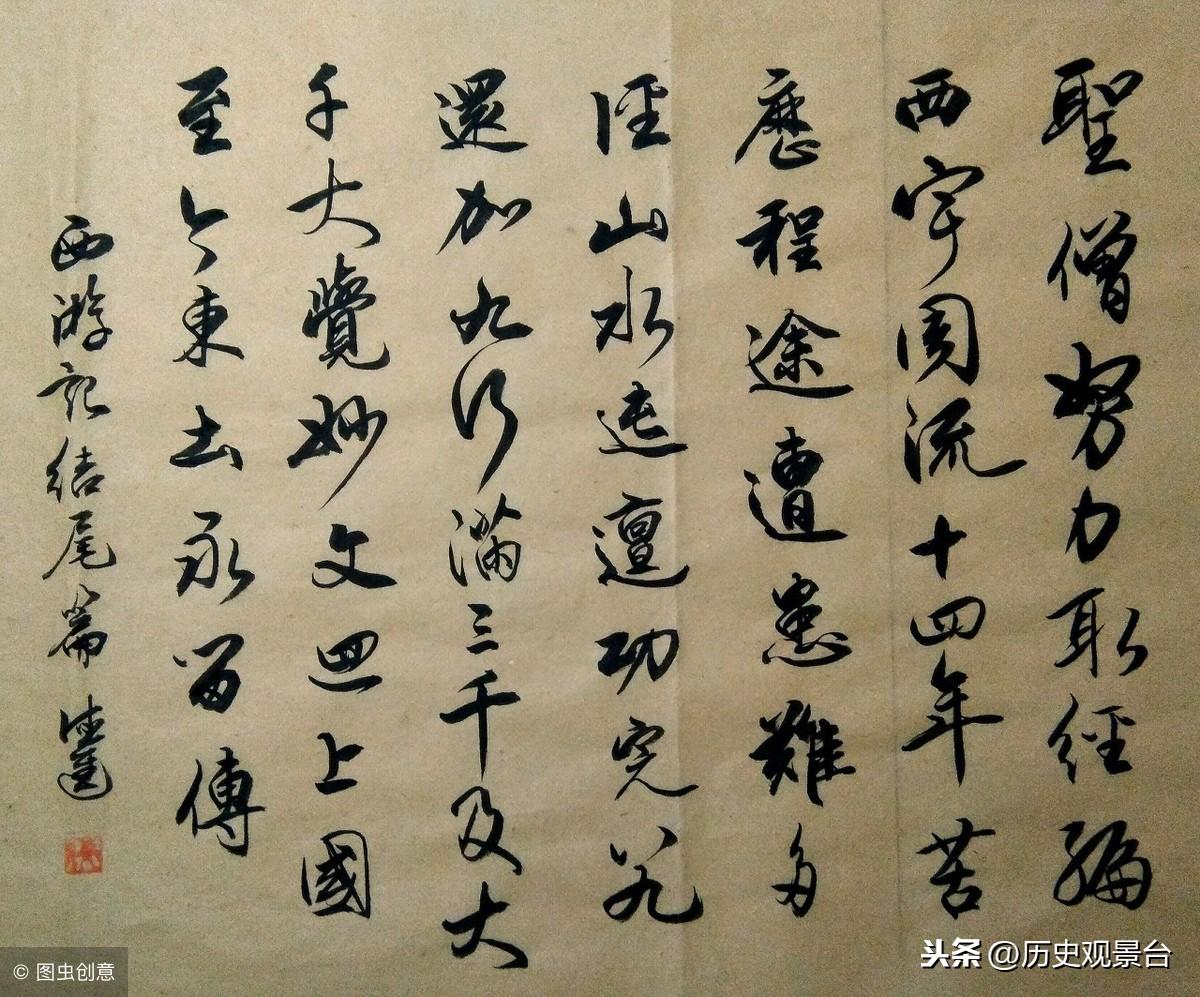 聖僧努力取經編
西宇周流十四年苦
歷程途遭患難多
徑山水迍邅功完八九
還加九行滿三千及大
千大覺妙文迴上國
至今東土永留傳
西游記結尾篇
© 图虫创意
头条 @历史观景台